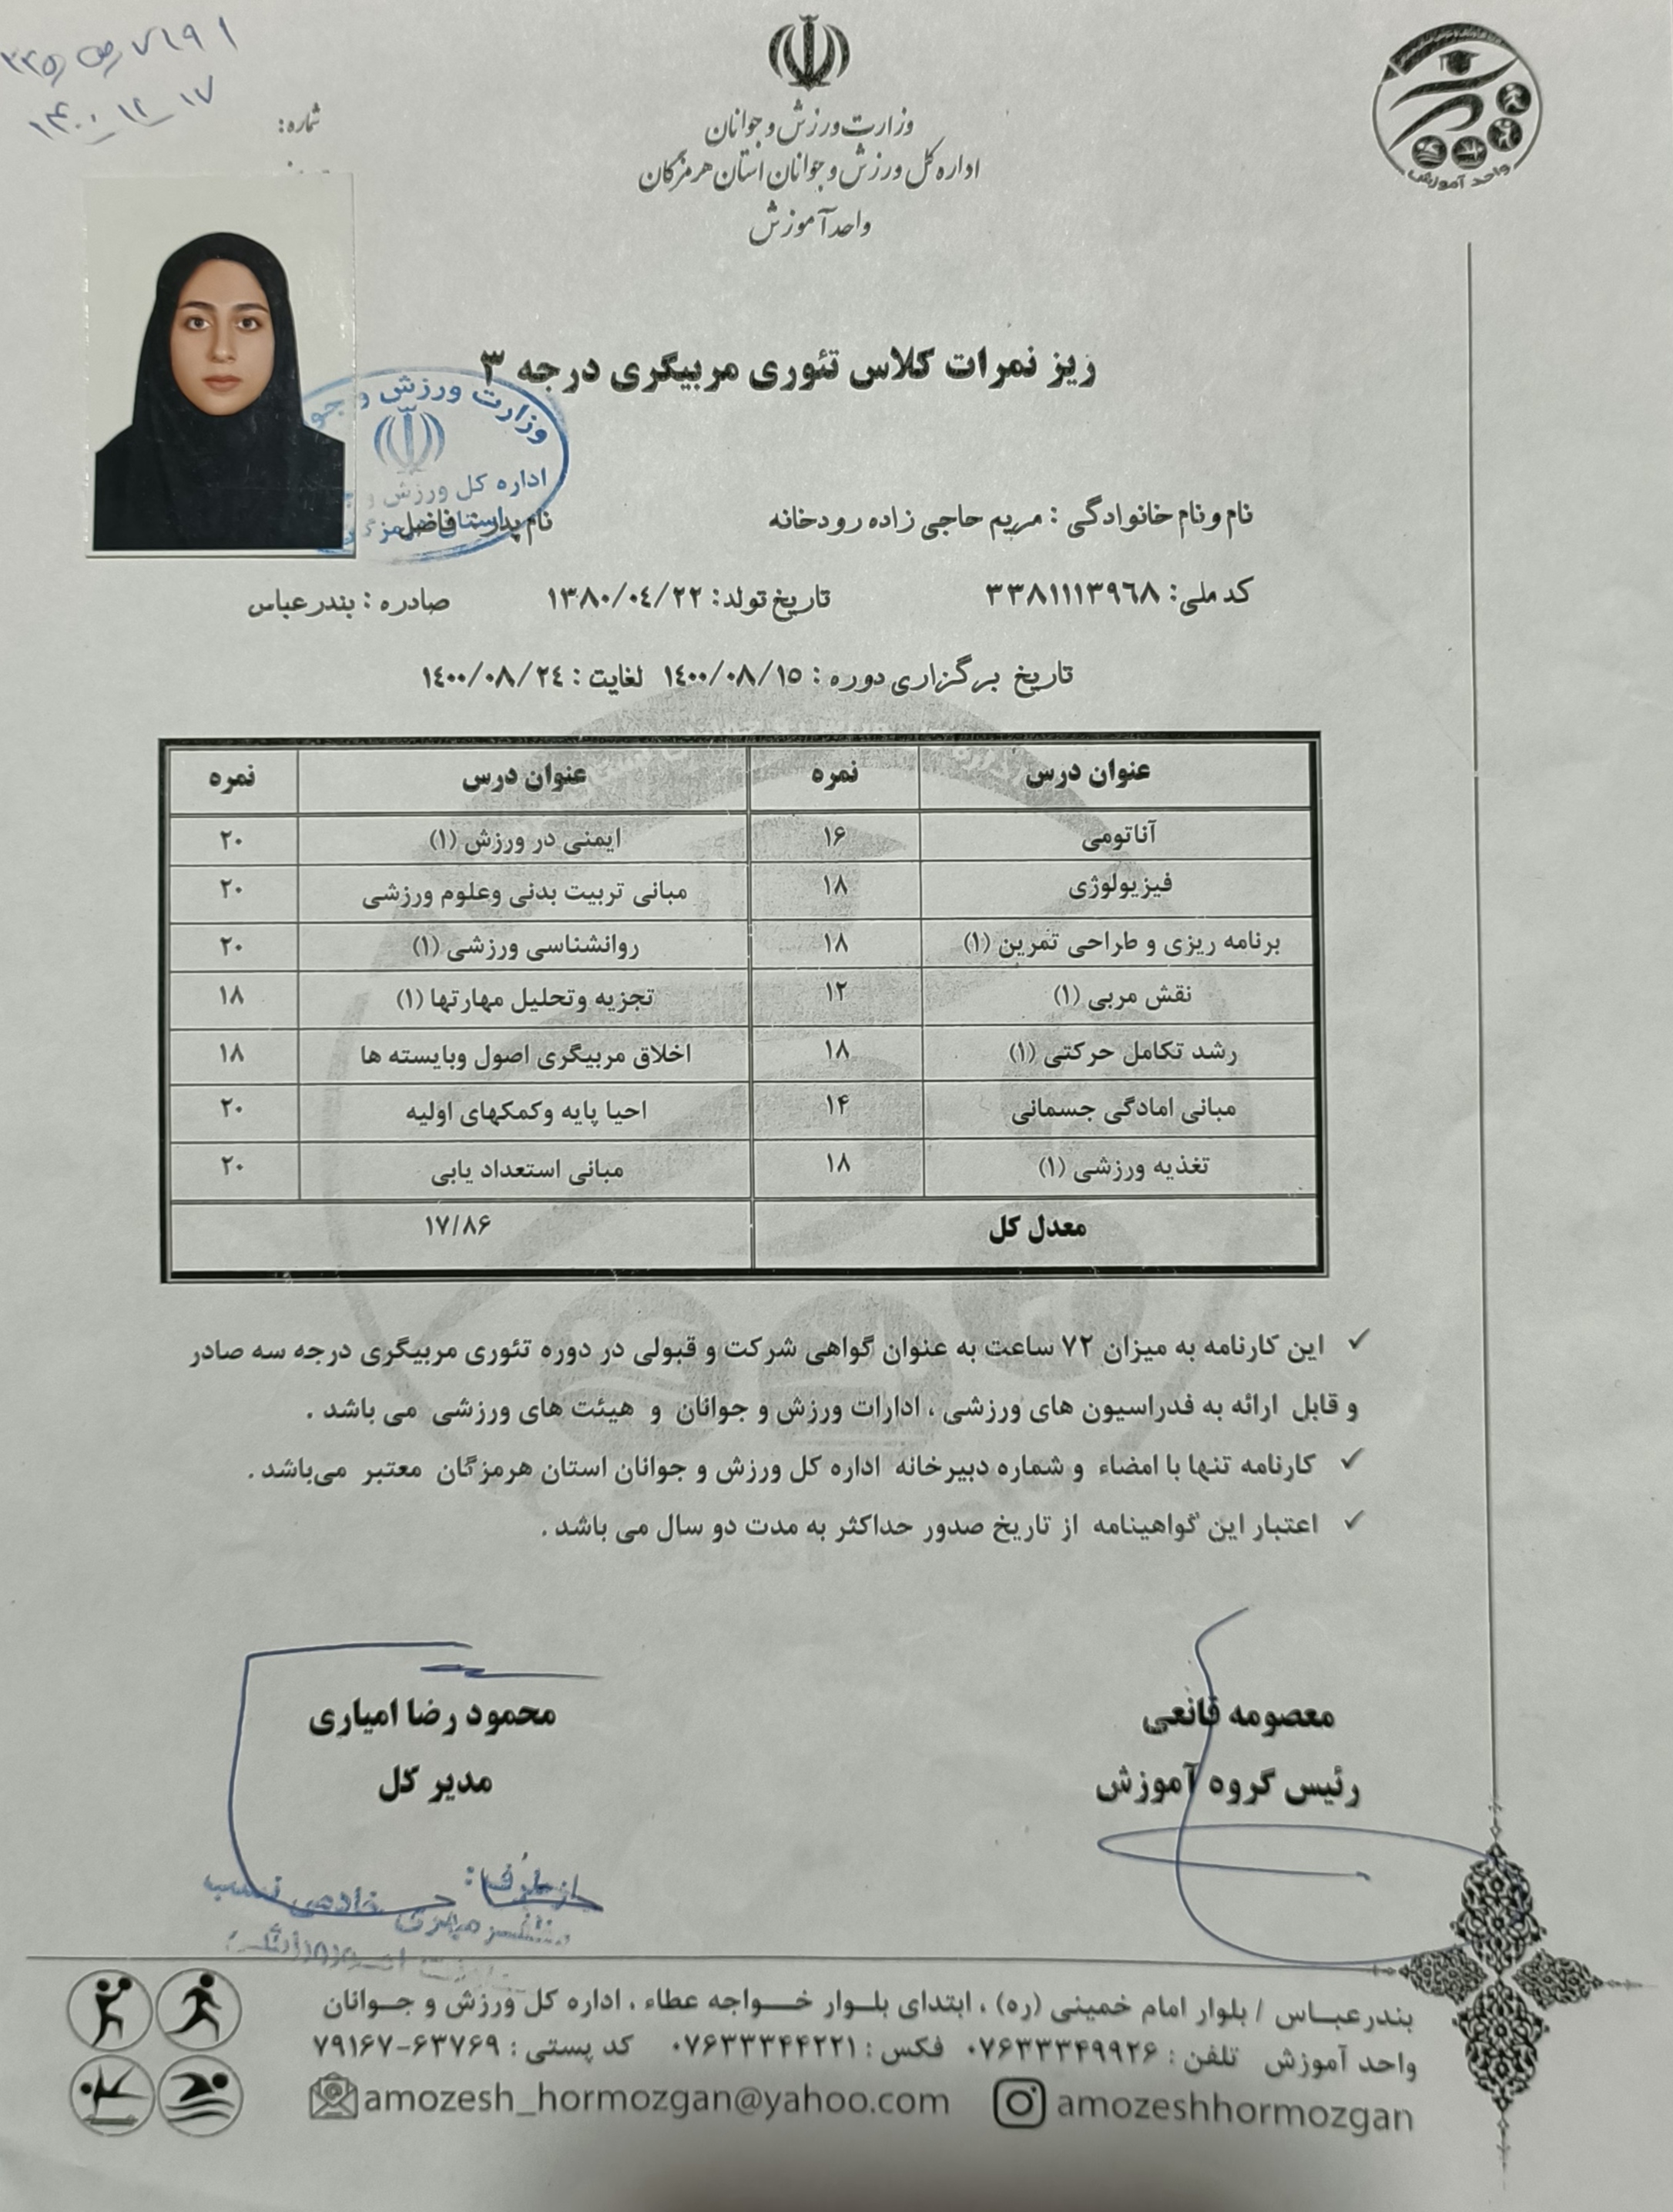 شماره:
۱۴۰۰_۱۲_۱۷
وزارت ورزش و جوانان
اداره کل ورزش و جوانان استان هرمزگان
واحد آموزش
واحد آموزش
ریز نمرات کلاس تئوری مربیگری درجه ۳
وزارت ورزش و جو
اداره کل ورزش و ج
نام و نام خانوادگی : مریم حاجی زاده رودخانه نام پدر : فاضل
کد ملی: ۳۳۸۱۱۱۳۹۶۸ تاریخ تولد: ۱۳۸۰/۰۴/۲۲ صادره : بندرعباس
تاریخ برگزاری دوره : ۱۴۰۰/۰۸/۱۵ لغایت : ۱۴۰۰/۰۸/۲۴
عنوان درس نمره عنوان درس نمره
آناتومی ۱۶ ایمنی در ورزش (۱) ۲۰
فیزیولوژی ۱۸ مبانی تربیت بدنی وعلوم ورزشی ۲۰
برنامه ریزی و طراحی تمرین (۱) ۱۸ روانشناسی ورزشی (۱) ۲۰
نقش مربی (۱) ۱۲ تجزیه وتحلیل مهارتها (۱) ۱۸
رشد تکامل حرکتی (۱) ۱۸ اخلاق مربیگری اصول وبایسته ها ۱۸
مبانی امادگی جسمانی ۱۴ احیا پایه وکمکهای اولیه ۲۰
تغذیه ورزشی (۱) ۱۸ مبانی استعداد یابی ۲۰
معدل کل ۱۷/۸۶
✓ این کارنامه به میزان ۷۲ ساعت به عنوان گواهی شرکت و قبولی در دوره تئوری مربیگری درجه سه صادر
و قابل ارائه به فدراسیون های ورزشی ، ادارات ورزش و جوانان و هیئت های ورزشی می باشد .
✓ کارنامه تنها با امضاء و شماره دبیرخانه اداره کل ورزش و جوانان استان هرمزگان معتبر می‌باشد .
✓ اعتبار این گواهینامه از تاریخ صدور حداکثر به مدت دو سال می باشد .
معصومه قانعی محمود رضا امیاری
رئیس گروه آموزش مدیر کل
از طرف :
بندرعباس / بلوار امام خمینی (ره) ، ابتدای بلوار خواجه عطاء ، اداره کل ورزش و جوانان
واحد آموزش تلفن : ۰۷۶۳۳۳۴۹۹۲۶ فکس : ۰۷۶۳۳۳۴۴۲۲۱ کد پستی : ۶۳۷۶۹-۷۹۱۶۷
amozesh_hormozgan@yahoo.com amozeshhormozgan